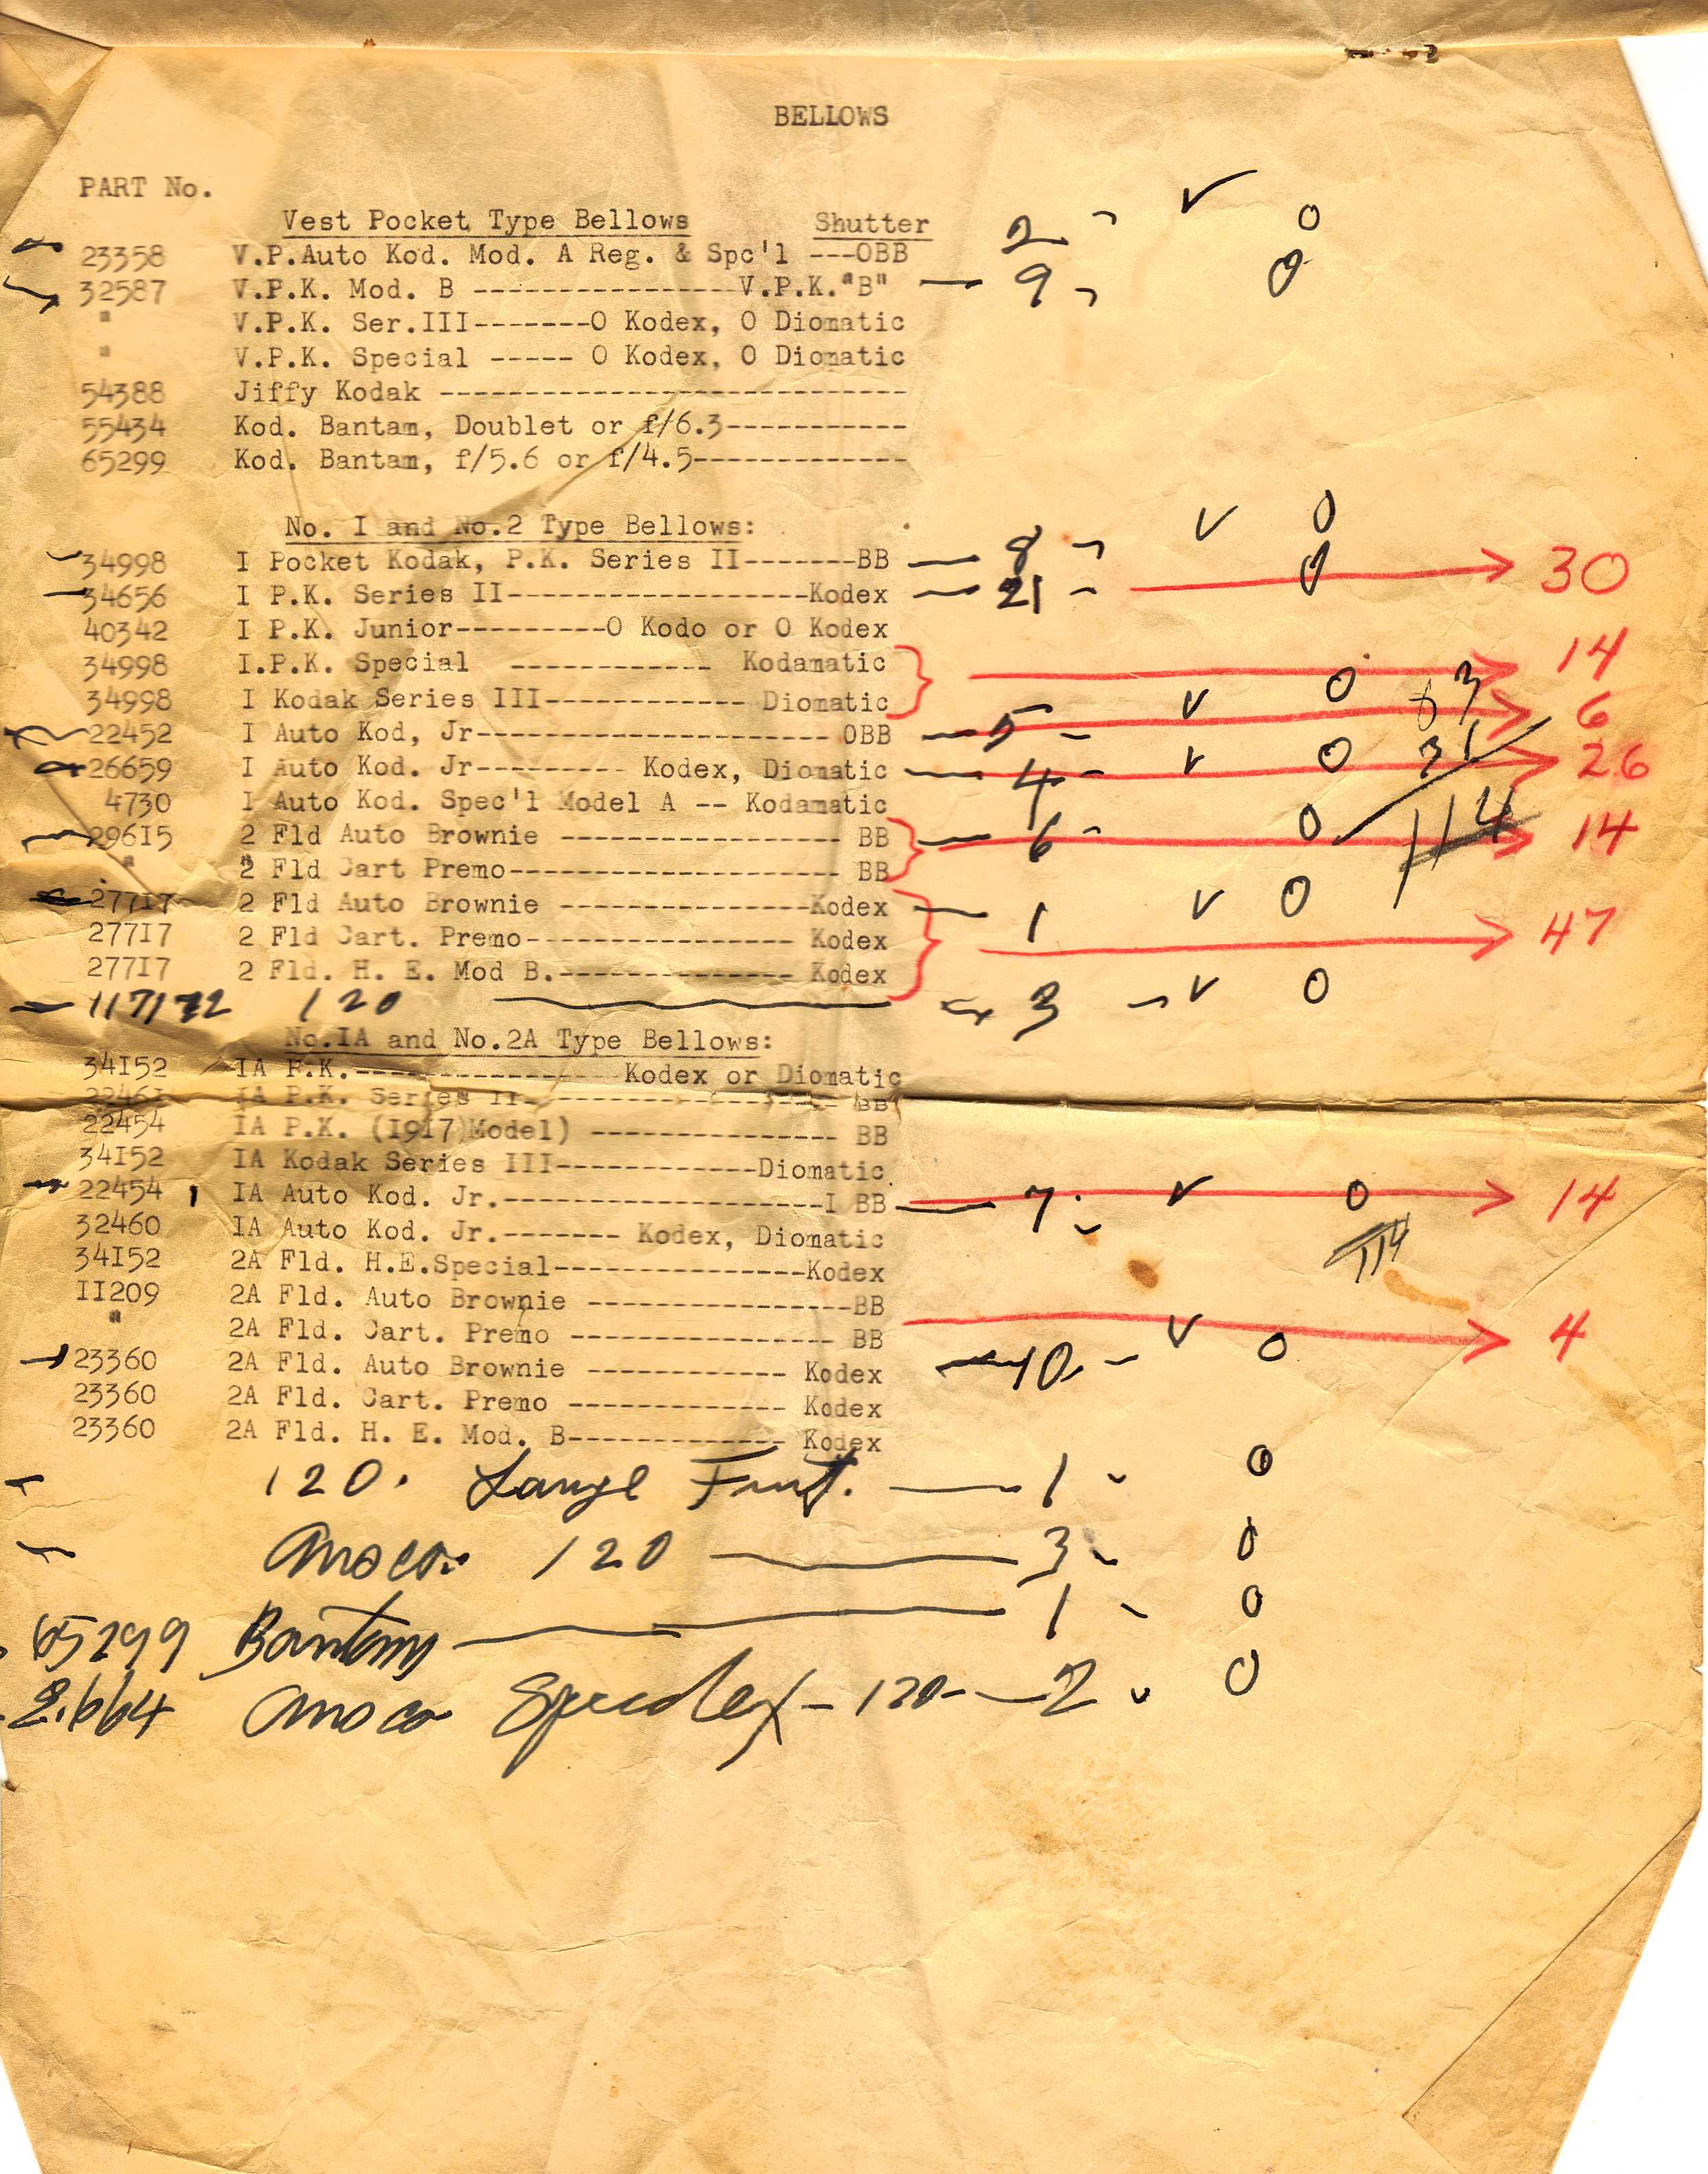 BELLOWS
PART No.
Vest Pocket Type Bellows Shutter
23358 V.P.Auto Kod. Mod. A Reg. & Spc'l ---OBB 2 0
32587 V.P.K. Mod. B ---------------V.P.K."B" 9 0
" V.P.K. Ser.III-------O Kodex, O Diomatic
" V.P.K. Special ----- O Kodex, O Diomatic
54388 Jiffy Kodak ----------------------------
55434 Kod. Bantam, Doublet or f/6.3-----------
65299 Kod. Bantam, f/5.6 or f/4.5-------------
No. I and No.2 Type Bellows:
34998 I Pocket Kodak, P.K. Series II-------BB 8 0
34656 I P.K. Series II------------------Kodex 21 0 30
40342 I P.K. Junior---------O Kodo or O Kodex
34998 I.P.K. Special ------------ Kodamatic 14
34998 I Kodak Series III------------ Diomatic
22452 I Auto Kod, Jr--------------------- OBB 5 0 6
26659 I Auto Kod. Jr--------- Kodex, Diomatic 4 0 26
4730 I Auto Kod. Spec'l Model A -- Kodamatic
29615 2 Fld Auto Brownie ----------------- BB 6 0 114 14
" 2 Fld Cart Premo-------------------- BB
27717 2 Fld Auto Brownie ---------------Kodex 1 0
27717 2 Fld Cart. Premo---------------- Kodex 47
27717 2 Fld. H. E. Mod B.-------------- Kodex
117172 120 3 0
No.IA and No.2A Type Bellows:
34152 IA P.K.---------------- Kodex or Diomatic
22461 IA P.K. Series II------------------- BB
22454 IA P.K. (1917 Model) --------------- BB
34152 IA Kodak Series III------------Diomatic
22454 IA Auto Kod. Jr.-------------------I BB 7 0 14
32460 IA Auto Kod. Jr.------- Kodex, Diomatic
34152 2A Fld. H.E.Special---------------Kodex 114
11209 2A Fld. Auto Brownie ----------------BB
" 2A Fld. Cart. Premo ---------------- BB 4
23360 2A Fld. Auto Brownie ------------ Kodex 10 0
23360 2A Fld. Cart. Premo ------------- Kodex
23360 2A Fld. H. E. Mod. B------------- Kodex
120. Large Front. 1 0
Ansco. 120 3 0
65299 Bantam 1 0
2.664 Ansco Speedex - 120 - 2 0